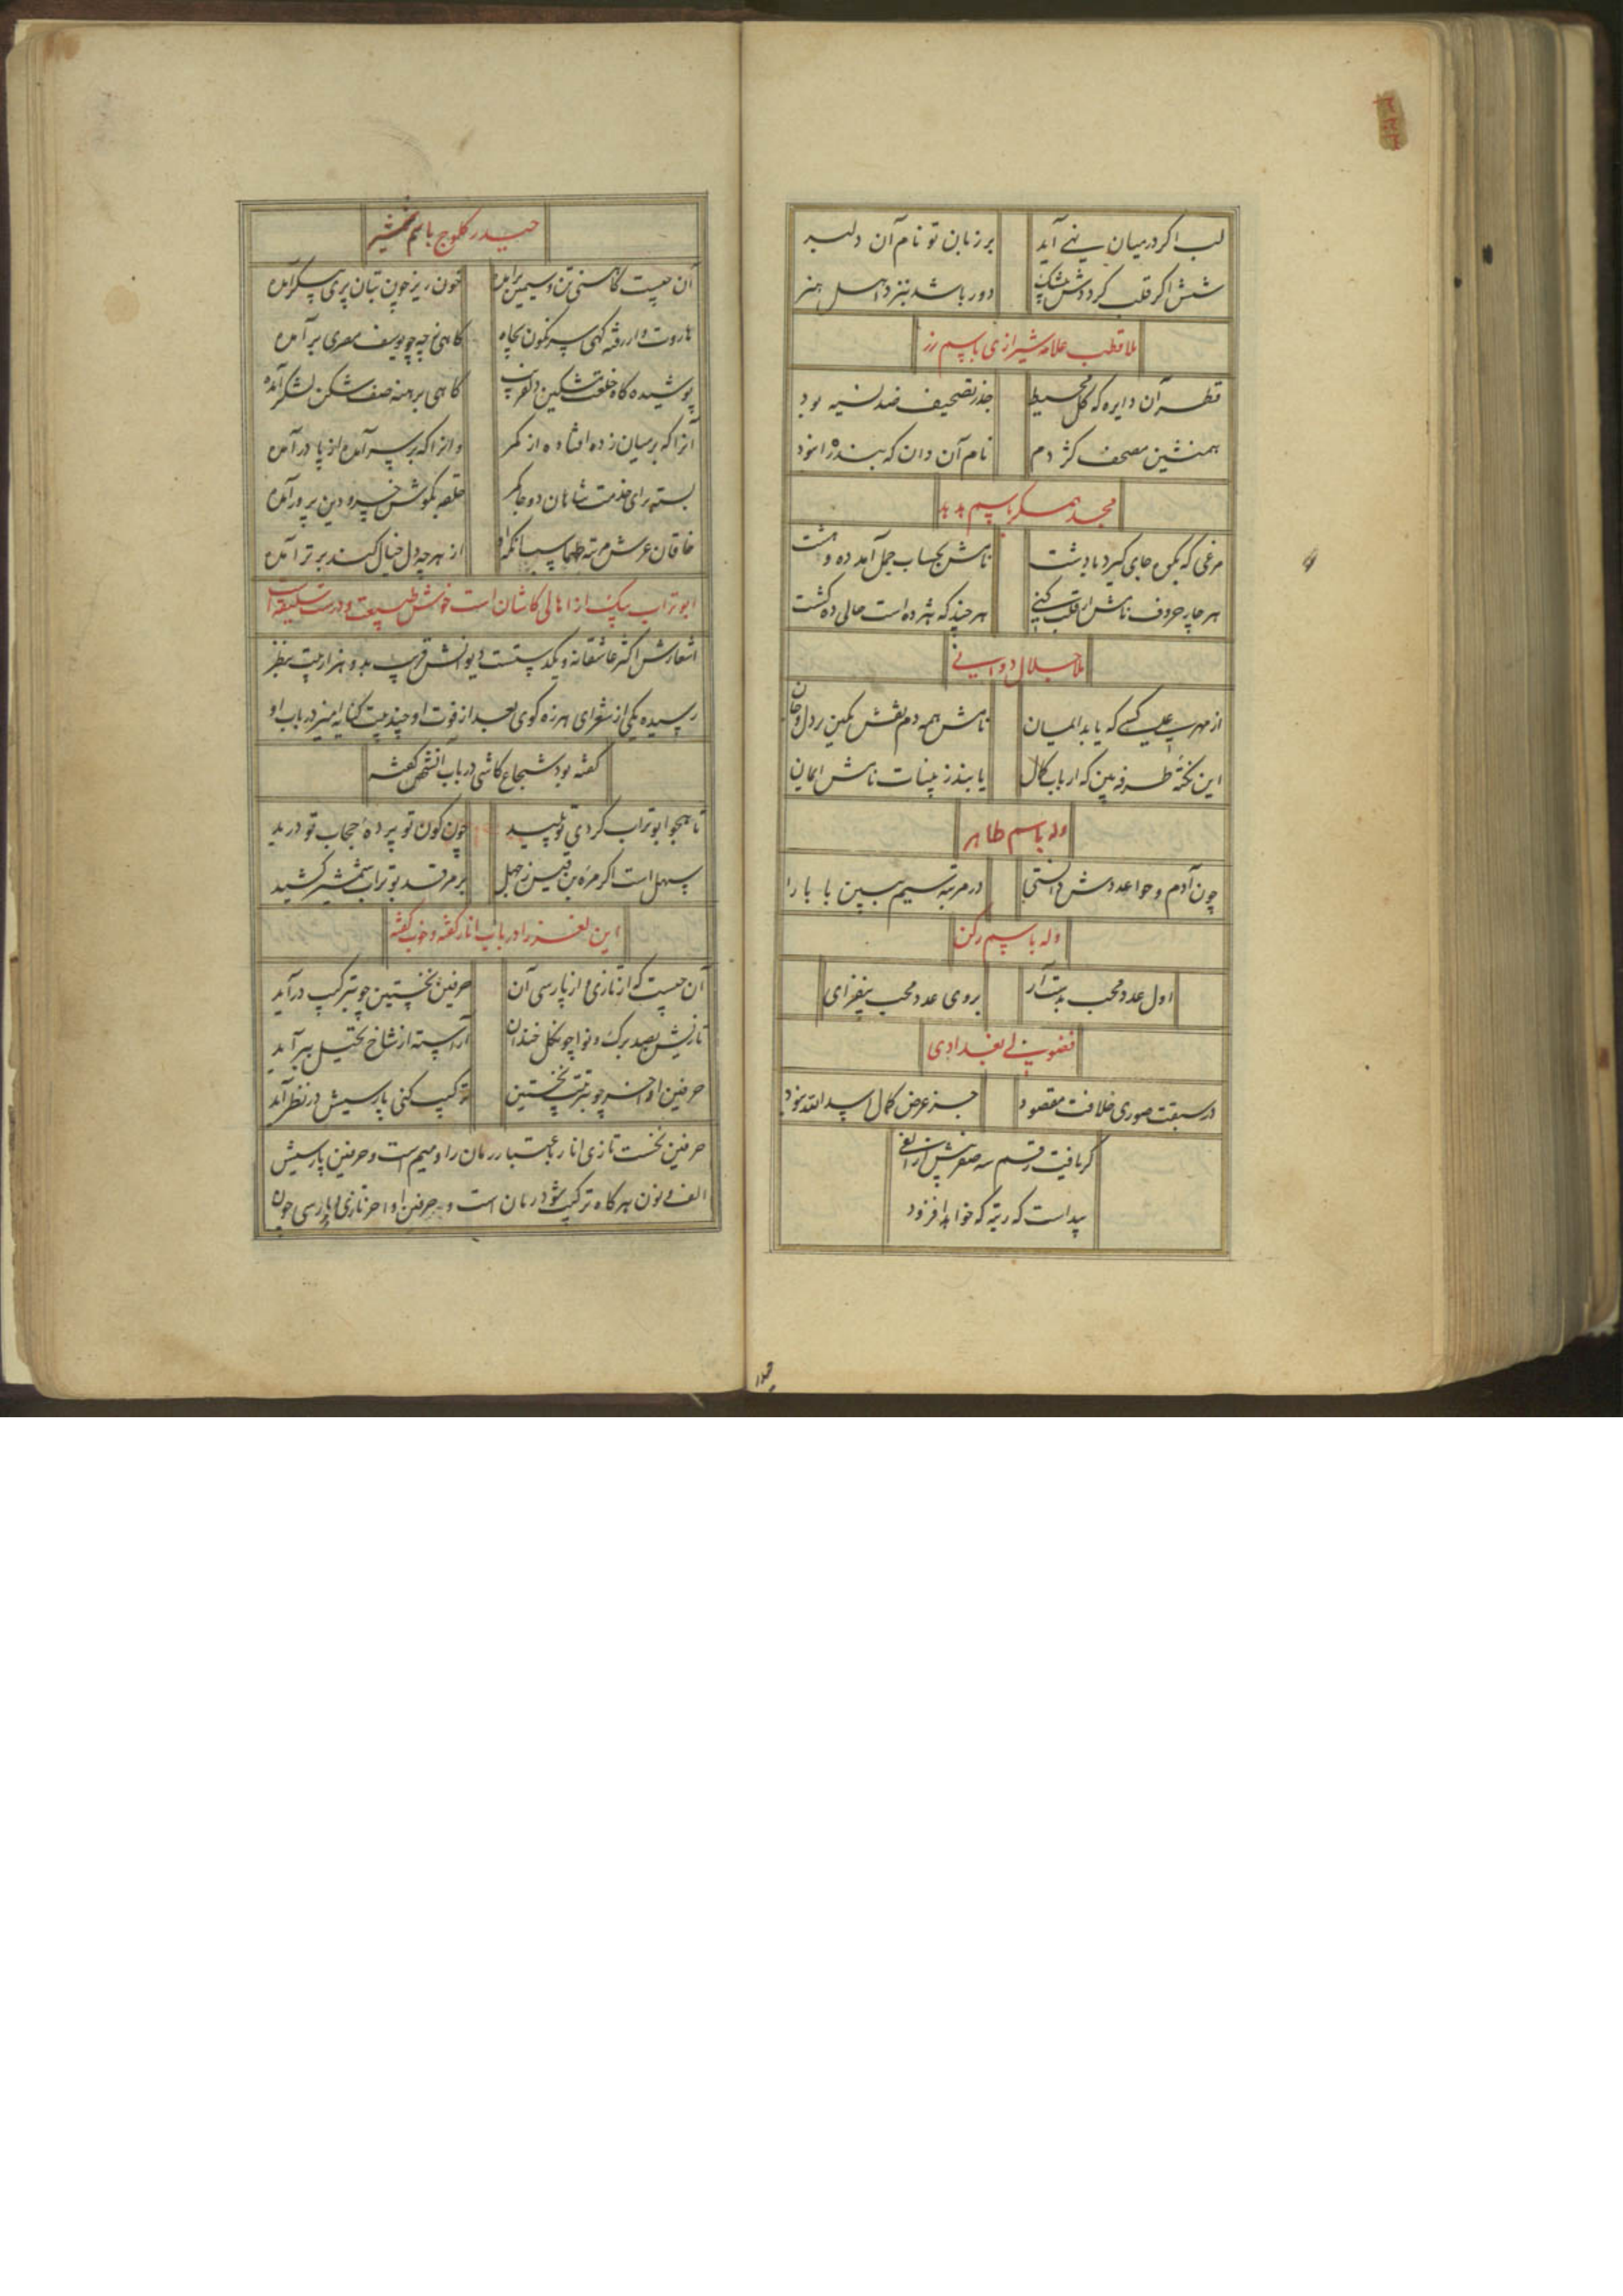 لب اگر در میان نی آید
بر زبان تو نام آن دلبر
شش اگر قلب گردد شش
دور باشد بنزد اهل هنر
ملا قطب علامه شیرازی باسم رز
قطر آن دایره که کل محیط
جذر تصحیف ضد نسیه بود
همنشین مصحف کژدم
نام آن دان که بنده را نمود
مجد همگر باسم هدهد
مرغی که بکوه جای گیرد یا دشت
نامش بحساب جمل آمد ده و هشت
هر چار حروف نامش ار قلب کنی
هر چند که هژده است حالی ده گشت
ملا جلال دوانی
از مهر علی کسی که یابد
نامش همه دم نقش نگین دل و جان
این نکتهٔ طرفه بین که ارباب کمال
یابند ز بینات نامش ایمان
وله باسم طاهر
چون آدم و حوا عددش دانستی
در مرتبه سیم ببین بابا را
وله باسم رکن
اول عدد محب بدست آر
بروی عدد محب بیفزای
فضولی بغدادی
در سبقت صوری خلافت مقصود
جز عرض کمال اسد الله نبود
گر یافت رقم سه صفر پیش از الفی
پیداست که رتبه که خواهد افزود
حیدر کلوج باسم شمشیر
آن چیست کاهنین تن و سیمین بر آمده
خون ریز چون بتان پری پیکر آمده
هاروت وار رفته گهی سرنگون بچاه
گاهی ز چه چو یوسف مصری بر آمده
پوشیده گاه خلعت مشکین دلفریب
گاهی برهنه صف شکن لشکر آمده
آنرا که بر میان زده افتاده از کمر
وانرا که بر سر آمده از پا در آمده
بسته برای خدمت شاهان دو جا کمر
حلقه بگوش خسرو دین پرور آمده
خاقان عرش مرتبه طهماسب آنکه او
از هر چه دل خیال کند برتر آمده
ابو تراب بیک از اهالی کاشان است خوش طبیعت و درست سلیقه است
اشعارش اکثر عاشقانه و یکدست است دیوانش قریب به دو هزار بیت بنظر
رسیده یکی از شعرای هرزه گوی بعد از فوت او چند بیت کنایه امیز در باب او
گفته بود شجاع کاشی در باب آنشخص گفته
تا هجو ابو تراب کردی تو پلید
چون کون تو پردهٔ حجاب تو درید
سهل است اگر مره بن قیس ز جهل
بر مرقد بو تراب شمشیر کشید
این لغز را در باب انار گفته و خوب گفته
آن چیست که از تازی و از پارسی آن
حرفین نخستین چو بترکیب در آید
تازیش بصد برگ و نوا چون گل خندان
آراسته از شاخ تخیل ببر آید
حرفین اواخر چو بترتیب نخستین
ترکیب کنی پارسیش در نظر آید
حرفین نخست تازی انار باعتبار رمان را و میم است و حرفین پارسیش
الف و نون هر گاه ترکیب شود رمان است و حرفین اواخر تازی و پارسی چون